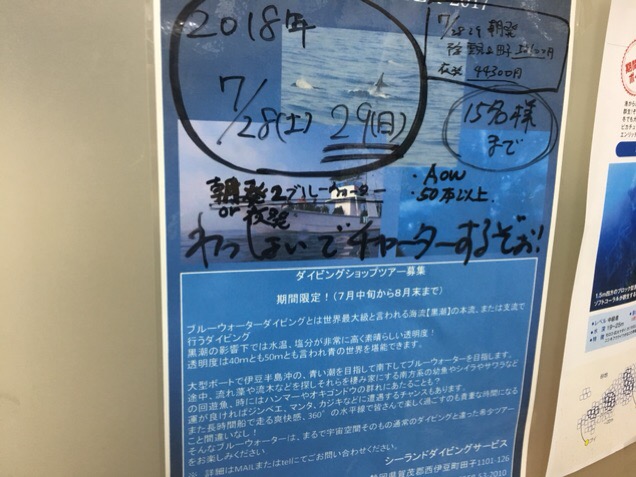 2017
2018年
7/28(土) 29(日)
7/28 29 朝発
夜発 44300円
15名様
まで
・AOW
・50本以上
朝発 2ブルーウォーター
or 夜発
わっしょいでチャーターするぞぉ!
ダイビングショップツアー募集
期間限定!(7月中旬から8月末まで)
ブルーウォーターダイビングとは世界最大級と言われる海流【黒潮】の本流、または支流で
行うダイビング
黒潮の影響下では水温、塩分が非常に高く素晴らしい透明度!
透明度は40mとも50mとも言われ青の世界を堪能できます。
大型ボートで伊豆半島沖の、青い潮を目指して南下してブルーウォーターを目指します。
途中、流れ藻や流木などを探しそれらを棲み家にする南方系の幼魚やシイラやサワラなど
の回遊魚、時にはハンマーやオキゴンドウの群れにあたることも?
運が良ければジンベエ、マンタ、カジキなどに遭遇するチャンスもあります。
また長時間船で走る爽快感、360°の水平線で皆さんで楽しく過ごすのも貴重な時間になる
こと間違いなし!
そんなブルーウォーターは、まるで宇宙空間そのもの通常のダイビングと違った希少ツアー
をお楽しみください
※ 詳細はMAILまたはtelにてご問い合わせください。
シーランドダイビングサービス
静岡県賀茂郡西伊豆町田子1101-126
53-2010
1.5m四方のブロック
ソフトコーラルが
・レベル